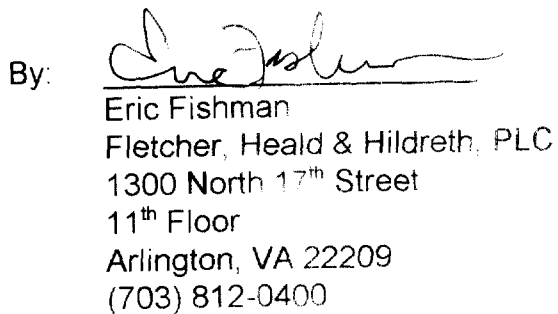 By: Eric Fishman
Eric Fishman
Fletcher, Heald & Hildreth, PLC
1300 North 17th Street
11th Floor
Arlington, VA 22209
(703) 812-0400